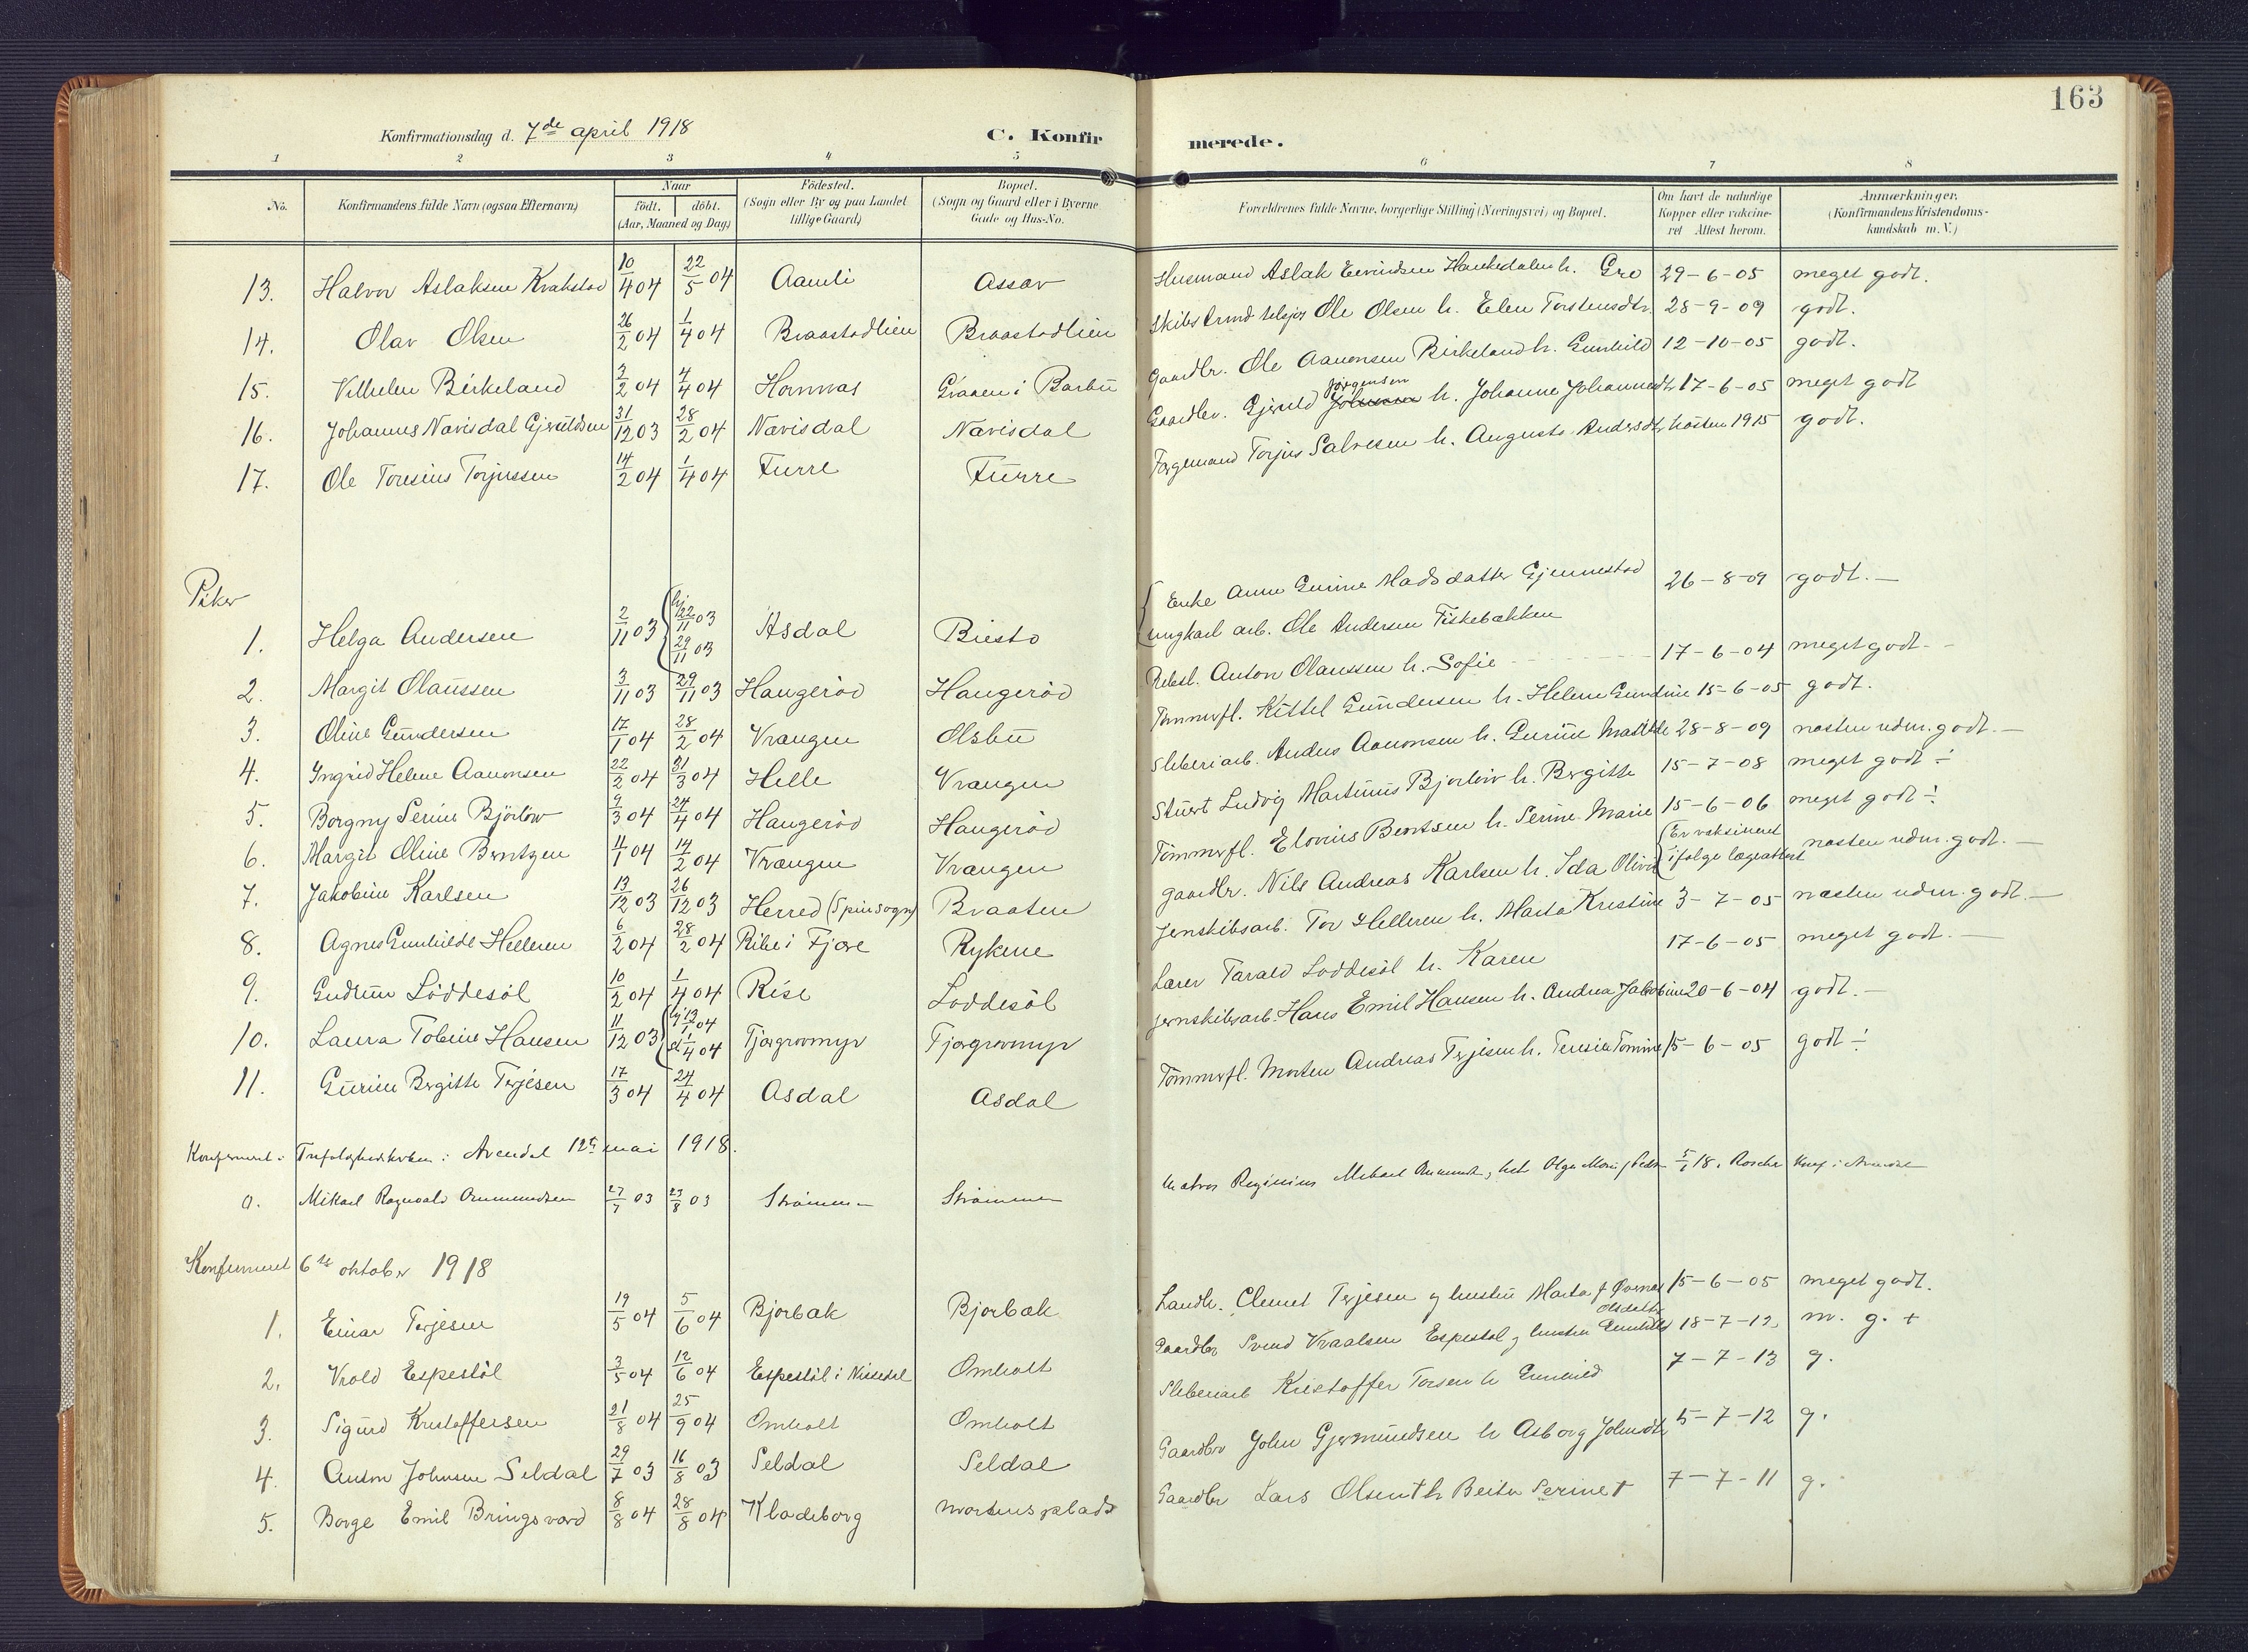 163
Konfirmationsdag d. 7de april 1918 C. Konfir merede.
1 2 3 4 5 6 7 8
No. Konfirmandens fulde Navn (ogsaa Efternavn) Naar födt. döbt. (Aar, Maaned og Dag) Födested. (Sogn eller By og paa Landet tillige Gaard) Bopæl. (Sogn og Gaard eller i Byerne Gade og Hus-No. Forældrenes fulde Navne, borgerlige Stilling (Næringsvei) og Bopæl. Om havt de naturlige Kopper eller vakcineret Attest herom. Anmærkninger. (Konfirmandens Kristendomskundskab m.V.)
13. Halvor Aslaksen Kvakstad 10/4 04 22/5 04 Aamli Assav Husmand Aslak Eivindsen Haukedalen h. Gro 29-6-05 meget godt.
14. Olav Olsen 26/2 04 1/4 04 Braastadlien Braastadlien Ole Olsen h. Elen Torstensdtr 28-9-09 godt.
15. Vilhelm Birkeland 3/2 04 4/4 04 Hornnas Graaen i Barbu Gaardbr. Ole Aanonsen Birkeland h. Gunhild 12-10-05 godt.
16. Johannes Nævisdal Gjeruldsen 31/12 03 28/2 04 Nævisdal Nævisdal Gaardbr. Gjeruld Jørgensen h. Johanne Johannesdtr 17-6-05 meget godt
17. Ole Toresius Torjussen 14/2 04 1/4 04 Furre Furre Forgemand Torjus Salvesen h. Augusta Andersdtr høsten 1915 godt.
Piker
1. Helga Andersen 2/11 03 hj 22/11 03 29/11 03 Asdal Biesto Enke Anne Gurine Madsdatter Gjennestad 26-8-09 godt.-
ungkarl arb. Ole Andersen Fiskebækken
2. Margit Olaussen 3/11 03 29/11 03 Haugeröd Haugeröd Rebsl. Anton Olaussen h. Sofie 17-6-04 meget godt.-
3. Oline Gundersen 17/1 04 28/2 04 Vrangen Olsbu Tømmerfl. Kittel Gundersen h. Helene Gundine 15-6-05 godt.
4. Ingrid Helene Aanonsen 22/2 04 31/3 04 Helle Vrangen Sliberiarb. Anders Aanonsen h. Gurine Matilde 28-8-09 næsten udm. godt.-
5. Borgny Serine Bjørlow 9/3 04 24/4 04 Haugeröd Haugeröd Stuert Ludvig Martinius Bjorlow h. Bergitte 15-7-08 meget godt ÷
6. Margit Oline Berntzen 11/1 04 14/2 04 Vrangen Vrangen Tömmerfl. Elovius Berntsen h. Serine Marie 15-6-06 meget godt ÷
7. Jakobine Karlsen 13/12 03 26/12 03 Herred (Spin sogn) Braaten gaardbr. Nils Andreas Karlsen h. Ida Olivia Er vaksineret ifølge lægeattest næsten udm. godt.-
8. Agnes Gunhilde Helleren 6/2 04 28/2 04 Ribe i Fjære Rykene Jernskibsarb. Tor Helleren h. Marta Kristine 3-7-05 næsten udm. godt.-
9. Gudrun Löddesöl 10/2 04 1/4 04 Rise Loddesöl Lærer Tarald Loddesöl h. Karen 17-6-05 meget godt.-
10. Laura Tobine Hansen 11/12 03 hj 13/1 04 st 1/4 04 Tjærgrovmyr Tjærgrovmyr jernskibsarb. Hans Emil Hansen h. Andrea Jakobine 20-6-04 godt.-
11. Gurine Bergitte Terjesen 17/3 04 24/4 04 Asdal Asdal Tømmerfl. Morten Andreas Terjesen h. Teresie Tomine 15-6-05 godt ÷
Konfirmert i Trefoldighedskirken i Arendal 12te mai 1918.
a. Mikael Ragnvald Ommundsen 27/7 03 23/8 03 Strømmen Strømmen Matros Reginius Mikael Ommunds, h Olga Marie f. 5/1 18. Roscher Konf. i Arendal
Konfirmeret 6te oktober 1918
1. Einar Terjesen 19/5 04 5/6 04 Bjorbæk Bjorbæk Landh. Clemet Terjesen og hustru Marta f. Övernes 15-6-05 meget godt.
2. Vrold Espestöl 3/5 04 12/6 04 Espestöl i Nissedal Omholt Gaardbr Svend Vraalsen Espestol og hustru Gunhild Olsdatter 18-7-12 m. g. +
3. Sigurd Kristoffersen 21/8 04 25/9 04 Omholt Omholt Sliberiarb Kristoffer Torsen h Gunnild 7-7-13 g.
4. Anton Johnsen Seldal 29/7 03 16/8 03 Seldal Seldal Gaardbr John Gjermundsen h Asborg Johnsdtr 5-7-12 g.
5. Borge Emil Bringsværd 8/8 04 28/8 04 Kladeborg Mortensplads Gaardbr Lars Olsen † h Beita Serine † 7-7-11 g.